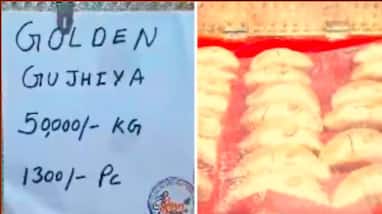 GOLDEN
GUJHIYA
50,000/- KG
1300/- PC